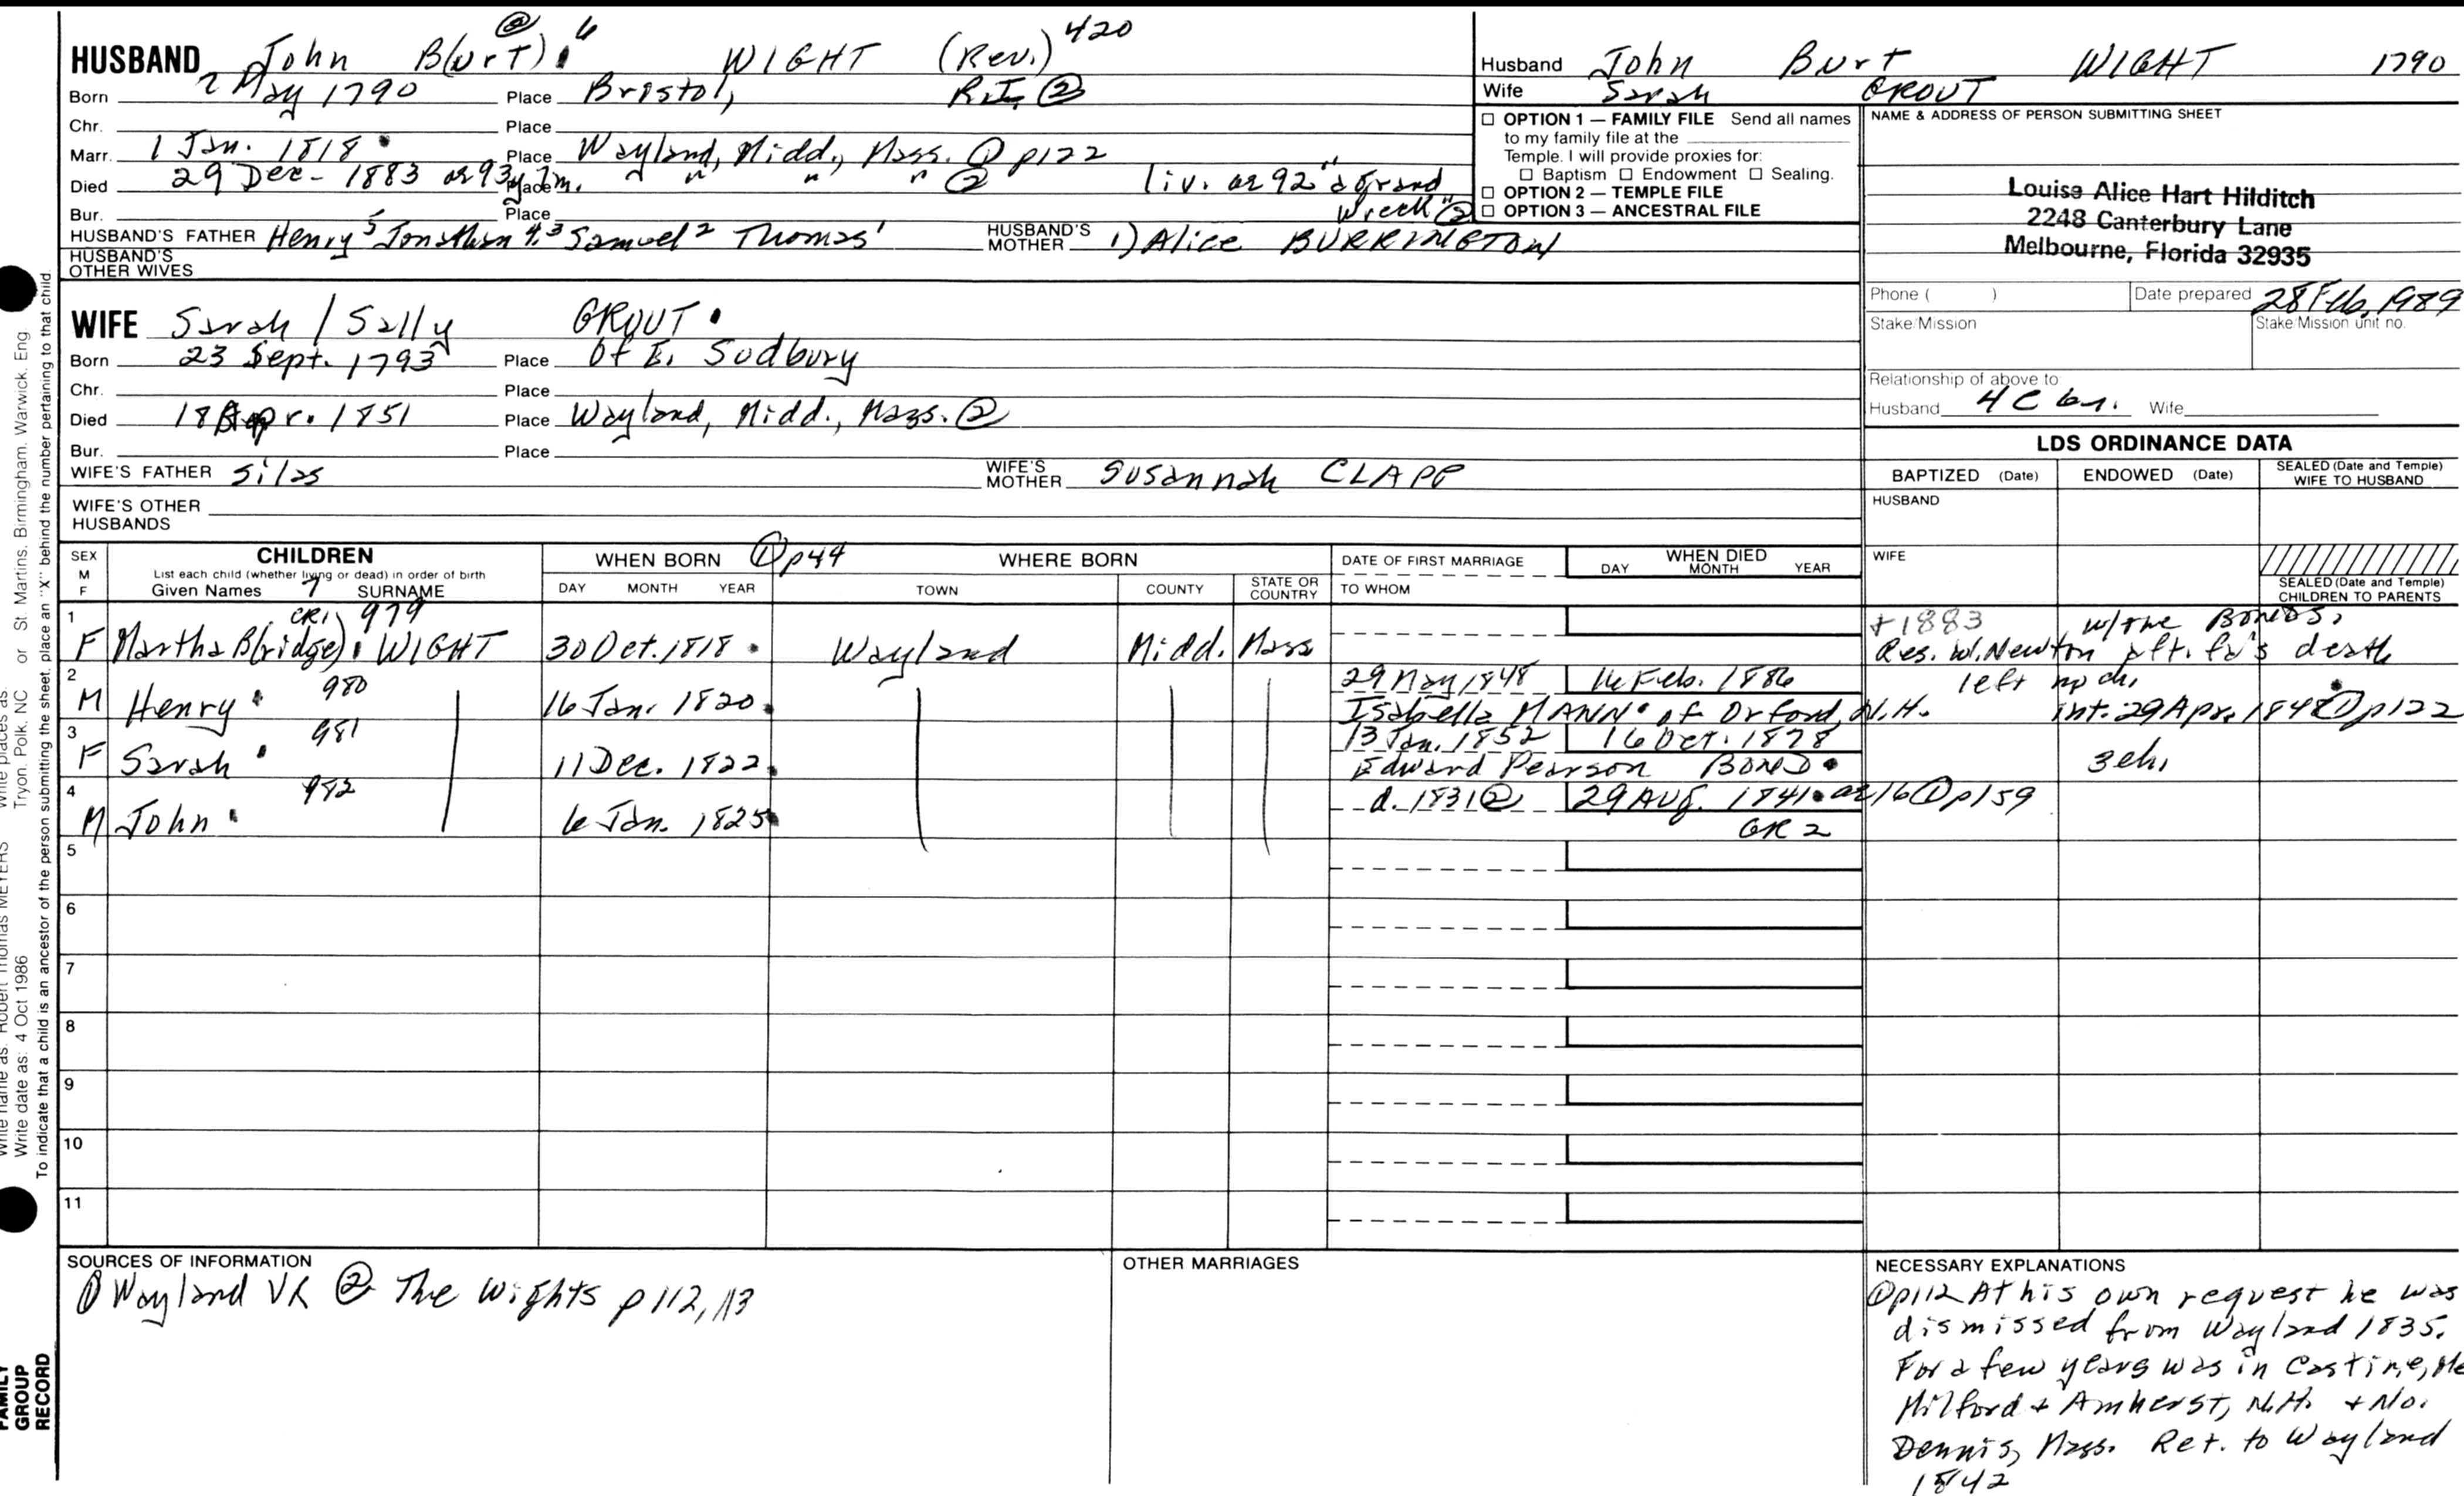 HUSBAND John B(urt) 6 WIGHT (Rev.) 420
Born 2 May 1790 Place Bristol, R.I. ②
Chr. Place
Marr. 1 Jan. 1818 Place Wayland, Midd., Mass. ① p122
Died 29 Dec. 1883 ae 93y 7m. Place " " " ② liv. ae 92 "a grand
Bur. Place wreck" ②
HUSBAND'S FATHER Henry 5 Jonathan 4,3 Samuel 2 Thomas 1 HUSBAND'S MOTHER 1) Alice BURRINGTON
HUSBAND'S OTHER WIVES
WIFE Sarah / Sally GROUT
Born 23 Sept. 1793 Place Of E. Sudbury
Chr. Place
Died 18 Apr. 1851 Place Wayland, Midd., Mass. ②
Bur. Place
WIFE'S FATHER Silas WIFE'S MOTHER Susannah CLAPP
WIFE'S OTHER HUSBANDS
Husband John Burt WIGHT 1790
Wife Sarah GROUT
☐ OPTION 1 — FAMILY FILE Send all names
to my family file at the
Temple. I will provide proxies for:
☐ Baptism ☐ Endowment ☐ Sealing.
☐ OPTION 2 — TEMPLE FILE
☐ OPTION 3 — ANCESTRAL FILE
NAME & ADDRESS OF PERSON SUBMITTING SHEET
Louise Alice Hart Hilditch
2248 Canterbury Lane
Melbourne, Florida 32935
Phone ( ) Date prepared 28 Feb. 1989
Stake/Mission Stake/Mission unit no.
Relationship of above to
Husband 4C 6r. Wife
LDS ORDINANCE DATA
BAPTIZED (Date) ENDOWED (Date) SEALED (Date and Temple) WIFE TO HUSBAND
HUSBAND
WIFE
SEALED (Date and Temple) CHILDREN TO PARENTS
SEX M F
CHILDREN
List each child (whether living or dead) in order of birth
Given Names 7 SURNAME
WHEN BORN ① p44 WHERE BORN
DAY MONTH YEAR TOWN COUNTY STATE OR COUNTRY
DATE OF FIRST MARRIAGE
TO WHOM
WHEN DIED
DAY MONTH YEAR
1 CR1 979 +1883 w/the BONDS,
F Martha B(ridge) WIGHT 30 Oct. 1818 Wayland Midd. Mass Res. W. Newton aft. fa's death
2 980 29 May 1848 16 Feb. 1886 left no ch.
M Henry 16 Jan. 1820 Isabella MANN of Orford, N.H. int. 29 Apr. 1848 ① p122
3 981 13 Jan. 1852 16 Oct. 1878
F Sarah 11 Dec. 1822 Edward Pearson BOND 3 ch.
4 982 d. 1831 ② 29 Aug. 1841 ae 16 ① p159
M John 6 Jan. 1825 GR 2
5
6
7
8
9
10
11
SOURCES OF INFORMATION
① Wayland VR ② The Wights p 112, 113
OTHER MARRIAGES
NECESSARY EXPLANATIONS
② p112 At his own request he was
dismissed from Wayland 1835.
For a few years was in Castine, Me
Milford + Amherst, N.H. + No.
Dennis, Mass. Ret. to Wayland
1842
or St. Martins, Birmingham, Warwick, Eng
Write places as: Tryon, Polk, NC
Write name as: Robert Thomas MEYERS
Write date as: 4 Oct 1986
To indicate that a child is an ancestor of the person submitting the sheet, place an "X" behind the number pertaining to that child.
FAMILY
GROUP
RECORD